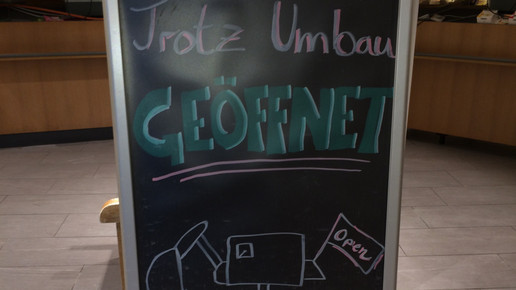 Trotz Umbau
GEÖFFNET
Open